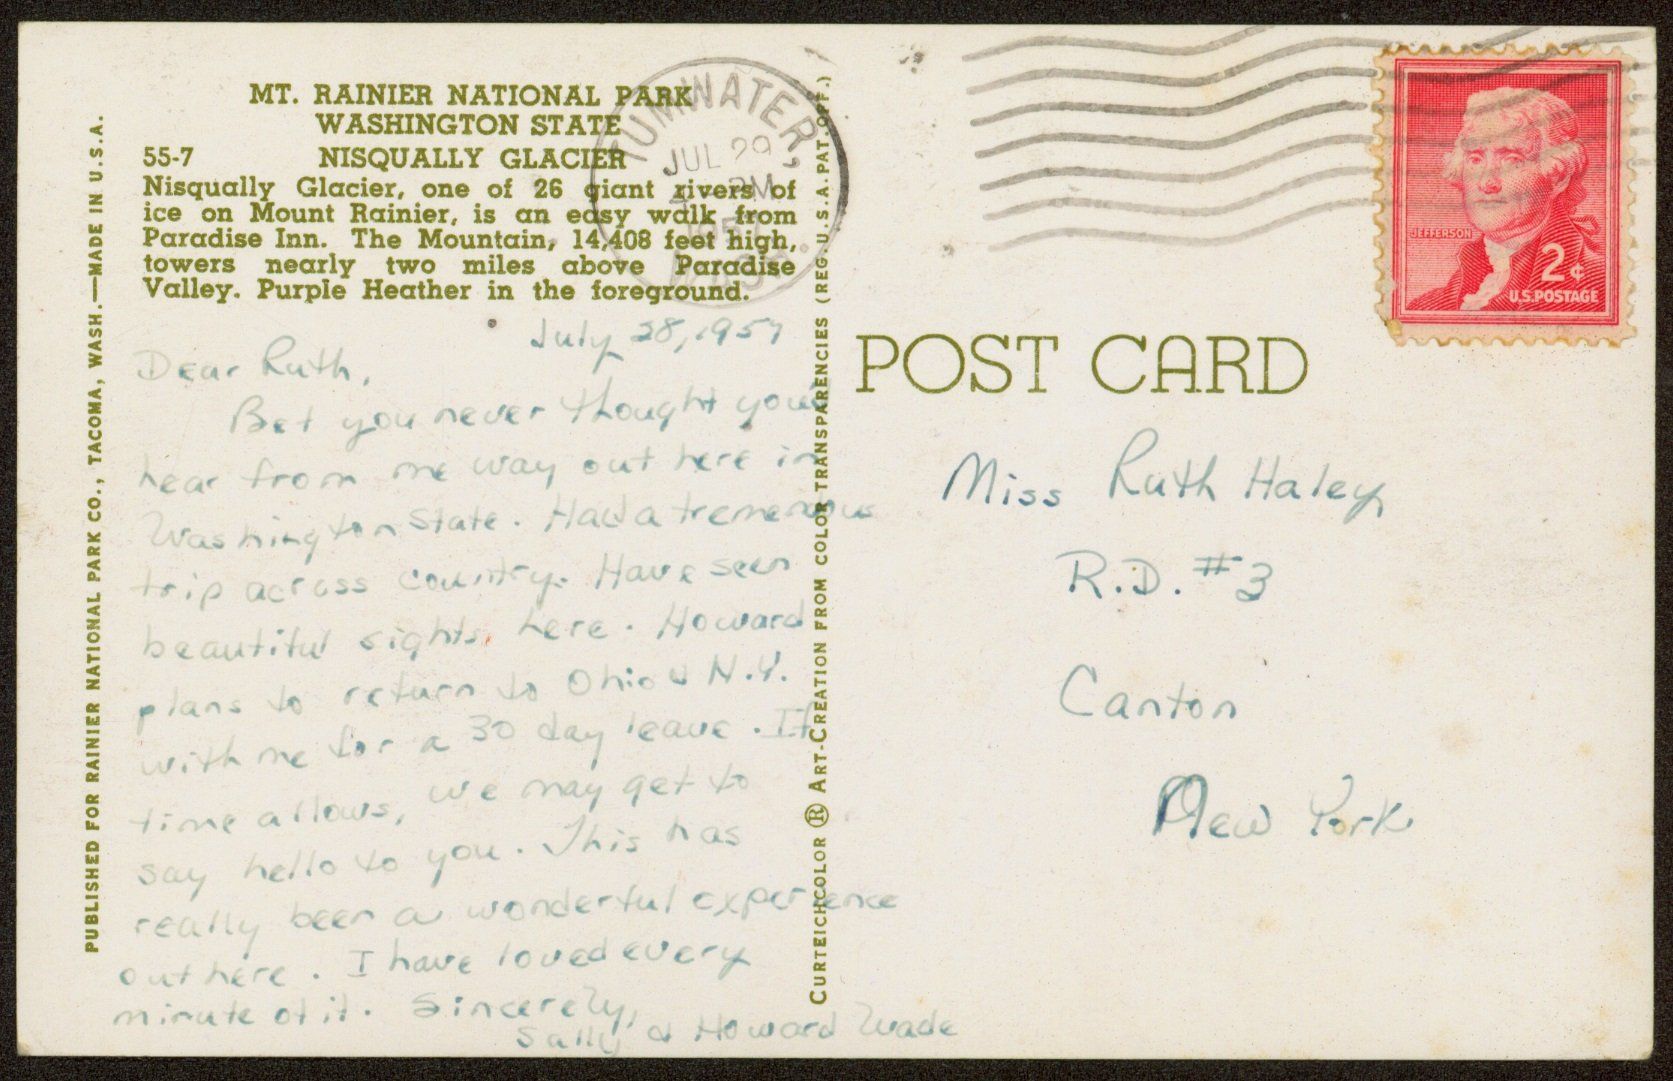 MT. RAINIER NATIONAL PARK
WASHINGTON STATE
55-7 NISQUALLY GLACIER
Nisqually Glacier, one of 26 giant rivers of
ice on Mount Rainier, is an easy walk from
Paradise Inn. The Mountain, 14,408 feet high,
towers nearly two miles above Paradise
Valley. Purple Heather in the foreground.
July 28, 1957
Dear Ruth,
Bet you never thought you'd
hear from me way out here in
Washington State. Had a tremendous
trip across country. Have seen
beautiful sights here. Howard
plans to return to Ohio & N.Y.
with me for a 30 day leave. If
time allows, we may get to
say hello to you. This has
really been a wonderful experience
out here. I have loved every
minute of it. Sincerely,
Sally & Howard Wade
PUBLISHED FOR RAINIER NATIONAL PARK CO., TACOMA, WASH.—MADE IN U.S.A.
CURTEICHCOLOR ® ART-CREATION FROM COLOR TRANSPARENCIES (REG. U.S.A. PAT. OFF.)
TUMWATER,
JUL 29
PM
1957
WASH.
JEFFERSON
2¢
U.S. POSTAGE
POST CARD
Miss Ruth Haley
R.D. #3
Canton
New York